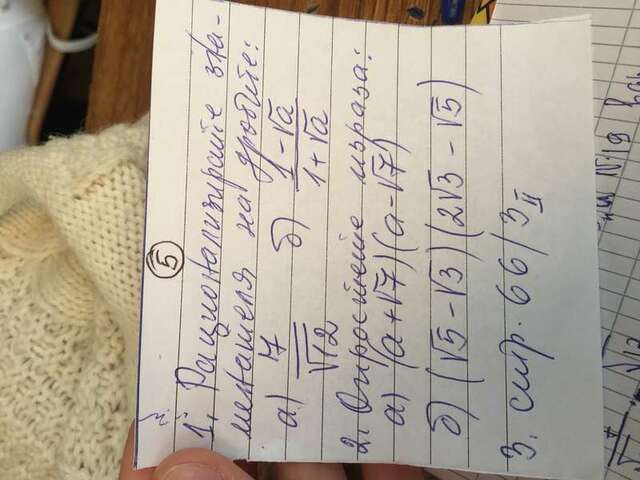 5
1. Рационализирайте зна-
менателя на дробите:
а) 7/√12 б) (1-√a)/(1+√a)
2. Опростете израза:
а) (a+√7)(a-√7)
б) (√5-√3)(2√3-√5)
3. стр. 66/3 II
№19